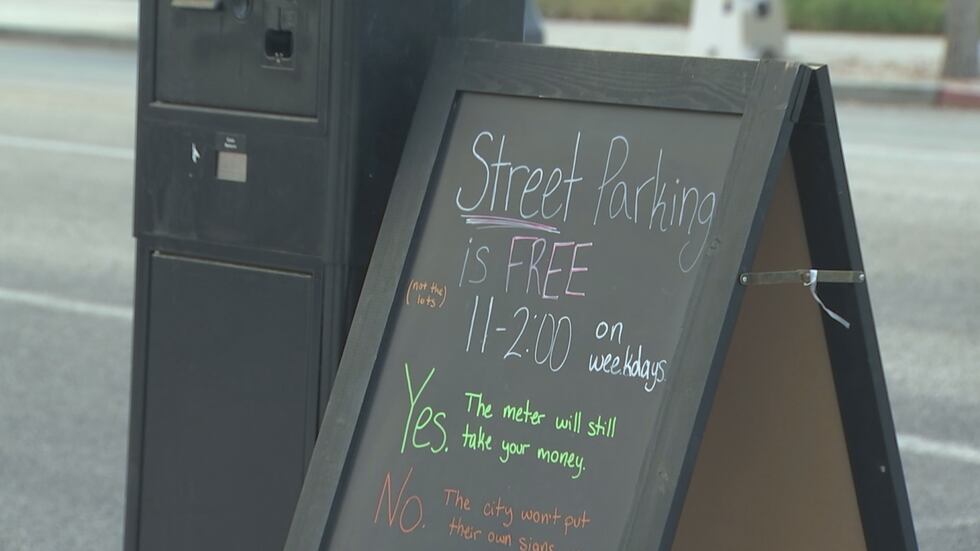 Street Parking
is FREE
(not the
lots)
11-2:00 on
weekdays
Yes. The meter will still
take your money.
No. The city won't put
their own signs